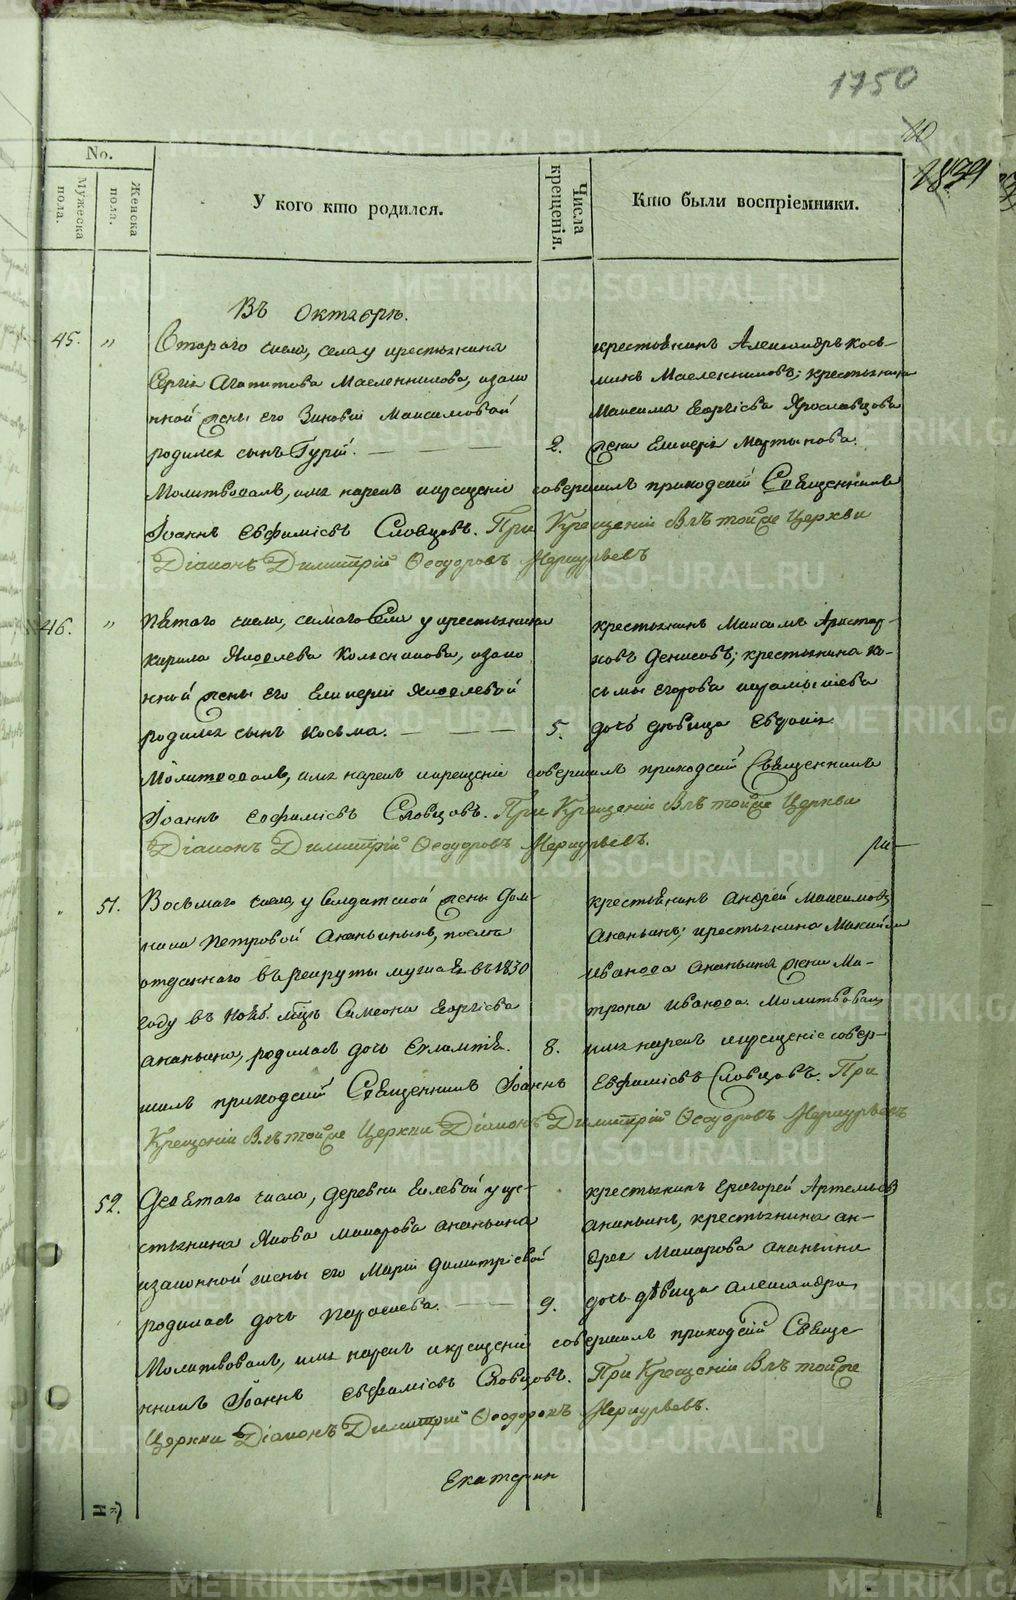 1750
10
1839
No.
Мужеска пола.
Женска пола.
У кого кто родился.
Числа крещенія.
Кто были воспріемники.
Въ Октябрѣ.
45. „ Втораго числа, села у крестьянина
Сергія Агапитова Масленникова, изако
нной жены его Зиновіи Максимовой
родился сынъ Гурій. 2.
крестьянинъ Александръ Кось-
минъ Масленниковъ; крестьянина
Максима Георгіева Ярославцова
жена Гликерія Мартынова.
Молитвовалъ, имя нарекъ икрещеніе совершилъ приходскій Священникъ
Іоаннъ Евфиміевъ Словцовъ. При Крещеніи былъ тойже Церкви
Діаконъ Димитрій Ѳеодоровъ Меркурьевъ
46. „ Пятаго числа, самаго Села у крестьянина
Кирила Яковлева Колесникова, изако
нной жены его Гликеріи Яковлевой
родился сынъ Косьма. 5.
крестьянинъ Максимъ Аристар-
ховъ Денисовъ; крестьянина Ко-
сьмы Егорова
дочь дѣвица Евдокія
Молитвовалъ, имя нарекъ икрещеніе совершилъ приходскій Священникъ
Іоаннъ Евфиміевъ Словцовъ. При Крещеніи былъ тойже Церкви
Діаконъ Димитрій Ѳеодоровъ Меркурьевъ.
„ 51. Восьмаго числа, у Солдатской жены Дом-
ники Петровой Ананьиныхъ, послѣ
отданнаго въ рекруты мужа ея въ 1830
году въ Нояб. мцѣ Симеона Георгіева
Ананьина, родилась дочь Евлампія. 8.
крестьянинъ Андрей Максимовъ
Ананьинъ; крестьянина
Иванова Ананьина жена Ма-
трона Иванова. Молитвовалъ
имя нарекъ икрещеніе совер-
шилъ приходскій Священникъ Іоаннъ Евфиміевъ Словцовъ. При
Крещеніи былъ тойже Церкви Діаконъ Димитрій Ѳеодоровъ Меркурьевъ
52. Девятаго числа, деревни у кре-
стьянина Якова Макарова Ананьина
изаконной жены его Маріи Димитріевой
родилась дочь Параскева. 9.
крестьянинъ Григорей Артемьевъ
Ананьинъ, крестьянина Ан-
дрея Макарова Ананьина
дочь дѣвица Александра,
Молитвовалъ, имя нарекъ икрещеніе совершилъ приходскій Свяще
нникъ Іоаннъ Евфиміевъ Словцовъ. При Крещеніи былъ тойже
Церкви Діаконъ Димитрій Ѳеодоровъ Меркурьевъ.
Екатерин
METRIKI.GASO-URAL.RU